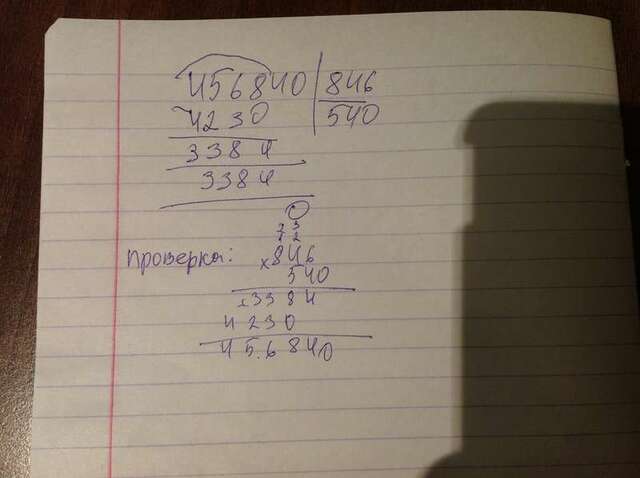 456840 846
4230 540
3384
3384
0
2 3
1 2
Проверка: 846
× 540
+3384
4230
456840